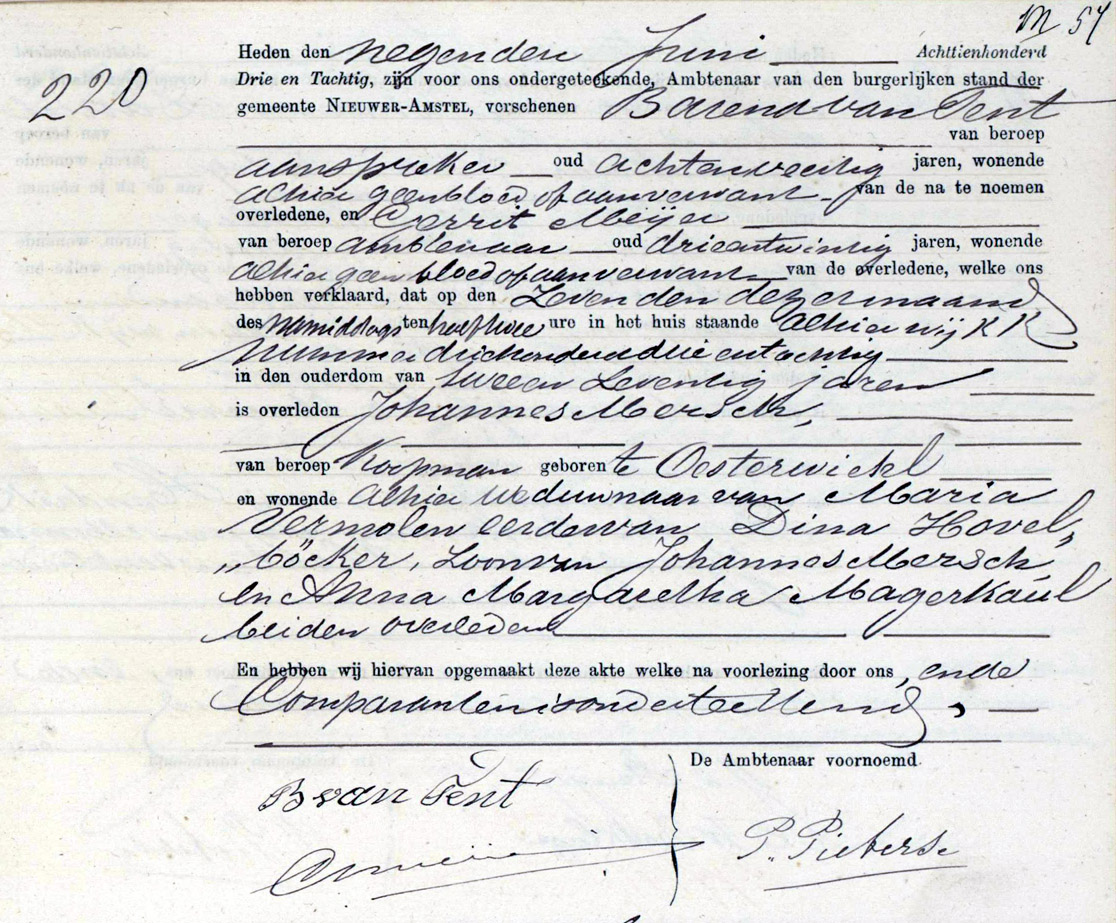 M 54
220
Heden den negenden Juni Achttienhonderd
Drie en Tachtig, zijn voor ons ondergeteekende, Ambtenaar van den burgerlijken stand der
gemeente NIEUWER-AMSTEL, verschenen Barend van Tent
van beroep
aanspreker oud achtenveertig jaren, wonende
alhier geen bloed of aanverwant van de na te noemen
overledene, en Gerrit Meijer
van beroep ambtenaar oud drieentwintig jaren, wonende
alhier geen bloed of aanverwant van de overledene, welke ons
hebben verklaard, dat op den Zevenden dezer maand
des Namiddags ten half twee ure in het huis staande alhier wijk K
nummer driehonderd drie en tachtig
in den ouderdom van twee en Zeventig jaren
is overleden Johannes Mersch,
van beroep Koopman geboren te Oesterwickl
en wonende alhier Weduwnaar van Maria
Vermolen eerder van Dina Hovel„
„böcker, Zoon van Johannes Mersch
en Anna Margaretha Magerkaul
beiden overleden
En hebben wij hiervan opgemaakt deze akte welke na voorlezing door ons, en de
Comparanten is onderteekend,
De Ambtenaar voornoemd
B van Tent
P. Pieterse